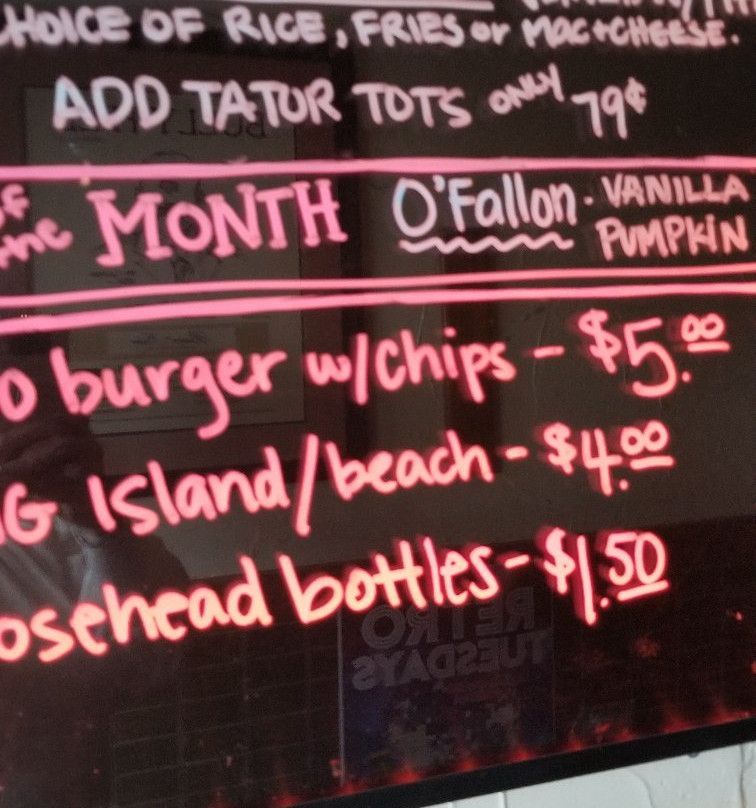 CHOICE OF RICE, FRIES or MAC+CHEESE.
ADD TATOR TOTS ONLY 79¢
of the MONTH O'Fallon - VANILLA PUMPKIN
O burger w/chips - $5.00
G Island/beach - $4.00
osehead bottles - $1.50
RETRO
TUESDAYS